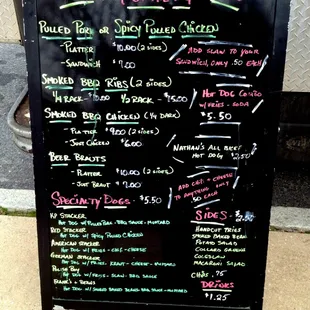 Pulled Pork or Spicy Pulled Chicken
- Platter $10.00 (2 sides)
- Sandwich $7.00
Add slaw to your
sandwich, only .50 each
Smoked BBQ Ribs (2 sides)
Rack - $15.00
Hot Dog Combo
w/ Fries - Soda
$5.50
Smoked BBQ Chicken (1/4 Dark)
- Platter $9.00 (2 sides)
- Just Chicken $6.00
Nathan's All Beef
Hot Dog $2.50
Beer Brauts
- Platter $10.00 (2 sides)
- Just Braut $7.00
Add chili - cheese
to anything only
.50 each
Specialty Dogs - $5.50
Hot Dog w/ Pulled Pork - BBQ Sauce - Mustard
Red Stacker
Hot Dog w/ Spicy Pulled Chicken
American Stacker
Hot Dog w/ Fries - Chili - Cheese
German Stacker
Hot Dog w/ Fries - Kraut - Cheese - Mustard
Polish Boy
Hot Dog w/ Fries - Slaw - BBQ Sauce
Frank n Beans
Hot Dog w/ Smoked Baked Beans - BBQ Sauce - Mustard
Sides -
Handcut Fries
Smoked Baked Beans
Potato Salad
Collard Greens
Coleslaw
Macaroni Salad
Chips .75
Drinks
$1.25